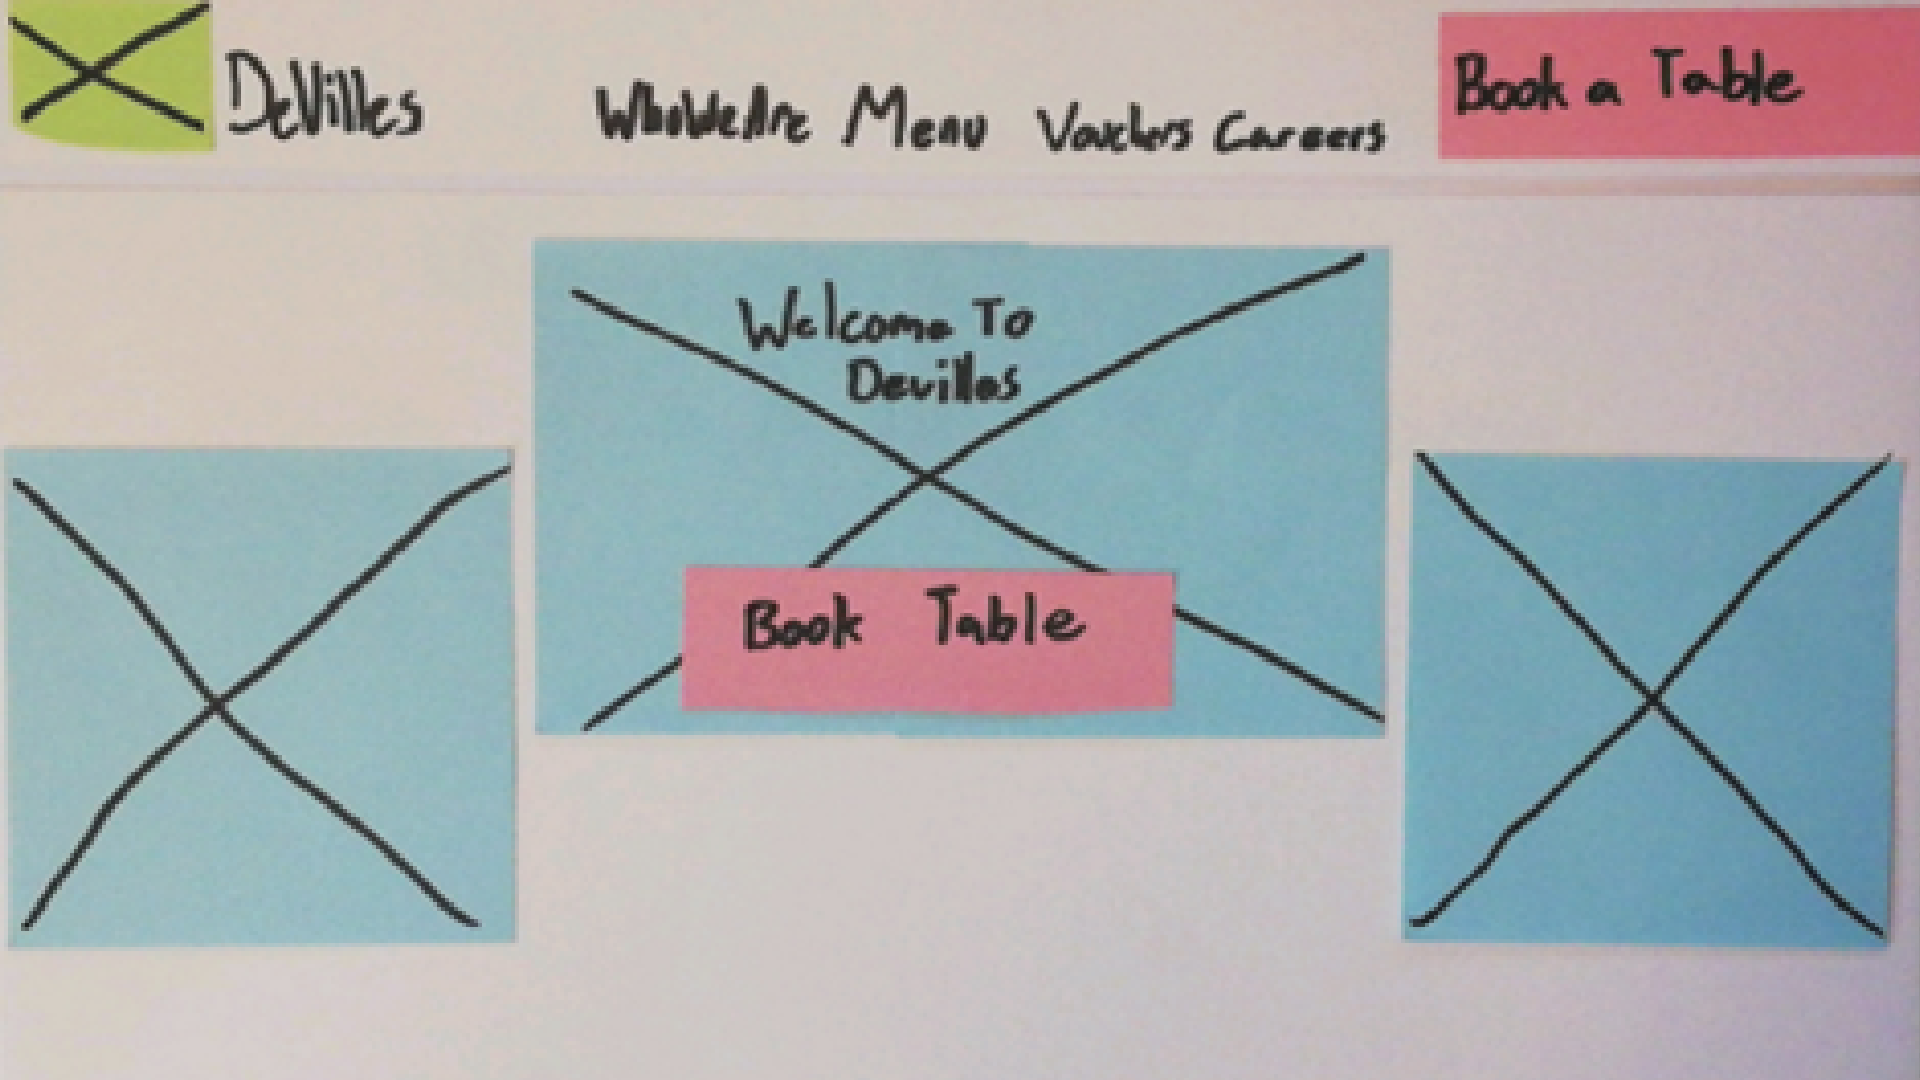 DeVilles
WhoWeAre Menu Vouchers Careers
Book a Table
Welcome To
Devilles
Book Table